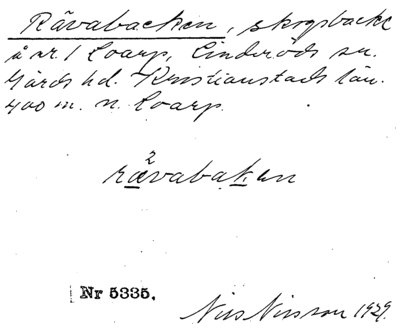 Rävabacken, skogsbacke
å nr 1 Loarp, Linderöds sn.
Gärds hd. Kristianstads län.
400 m. n. Loarp.
2
rävabaken
Nr 5335.
Nils Nilsson 1929.